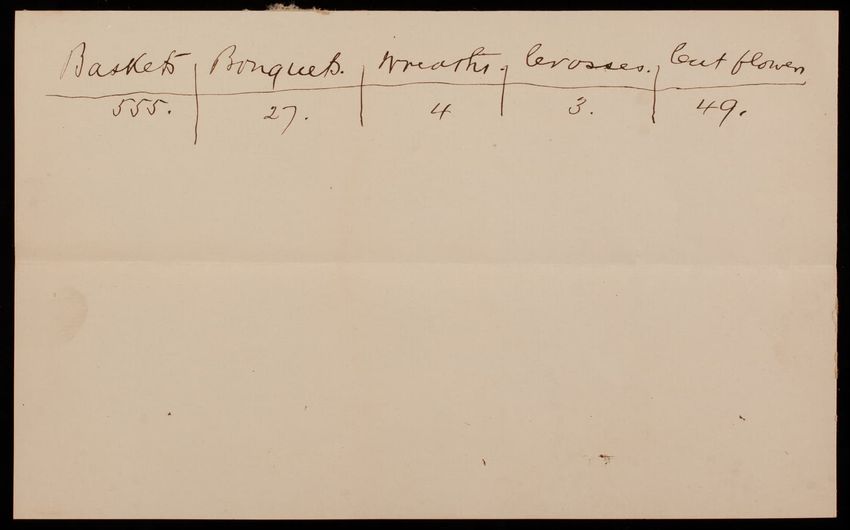 Baskets Bouquets. Wreaths. Crosses. Cut flowers
555. 27. 4 3. 49.